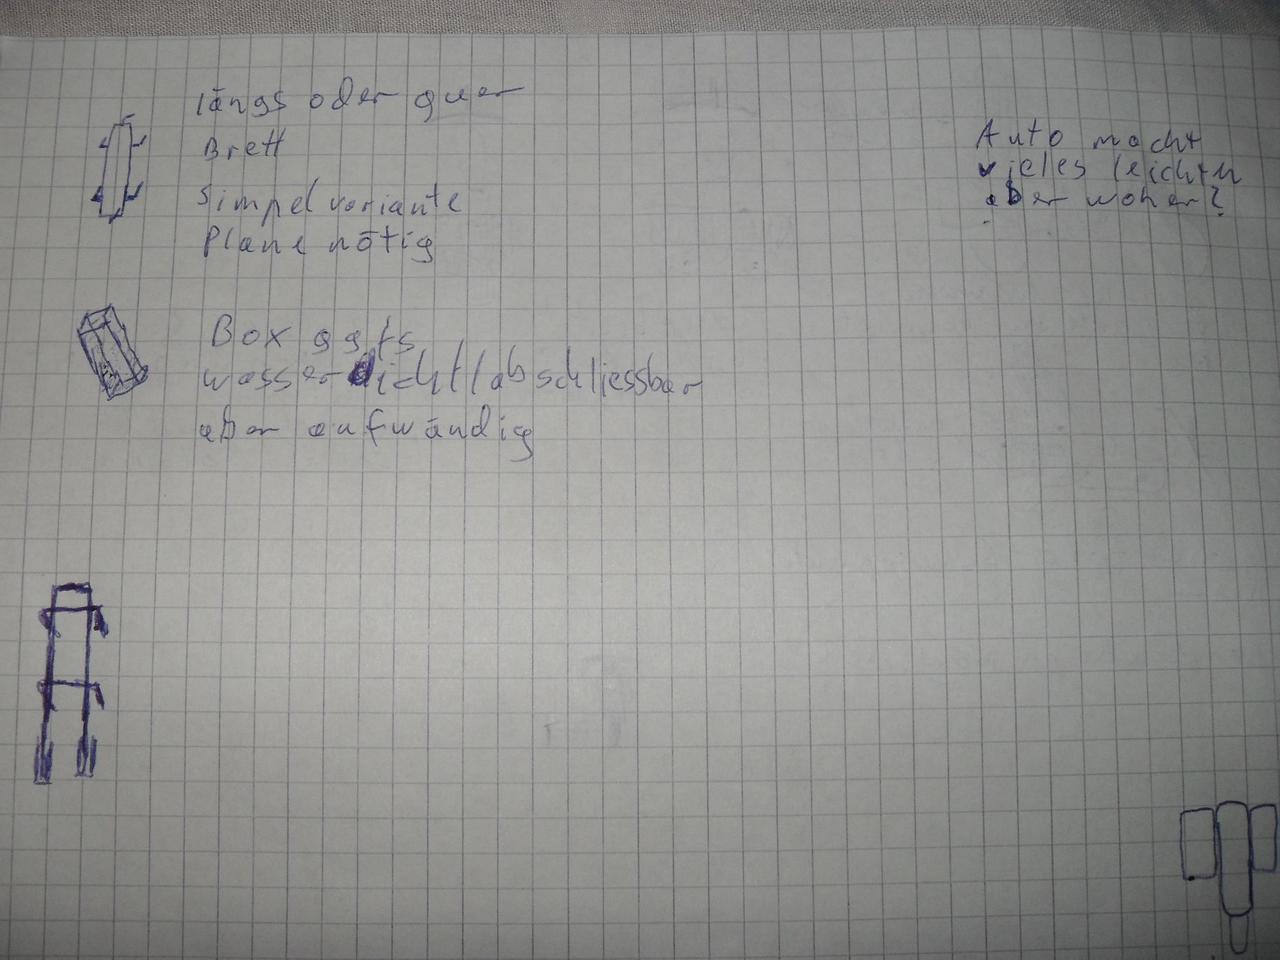 längs oder quer
Brett
Simpel variante
Plane nötig
Box ggfs
wasserdicht/abschliessbar
aber aufwändig
Auto macht
vieles leichter
aber woher?